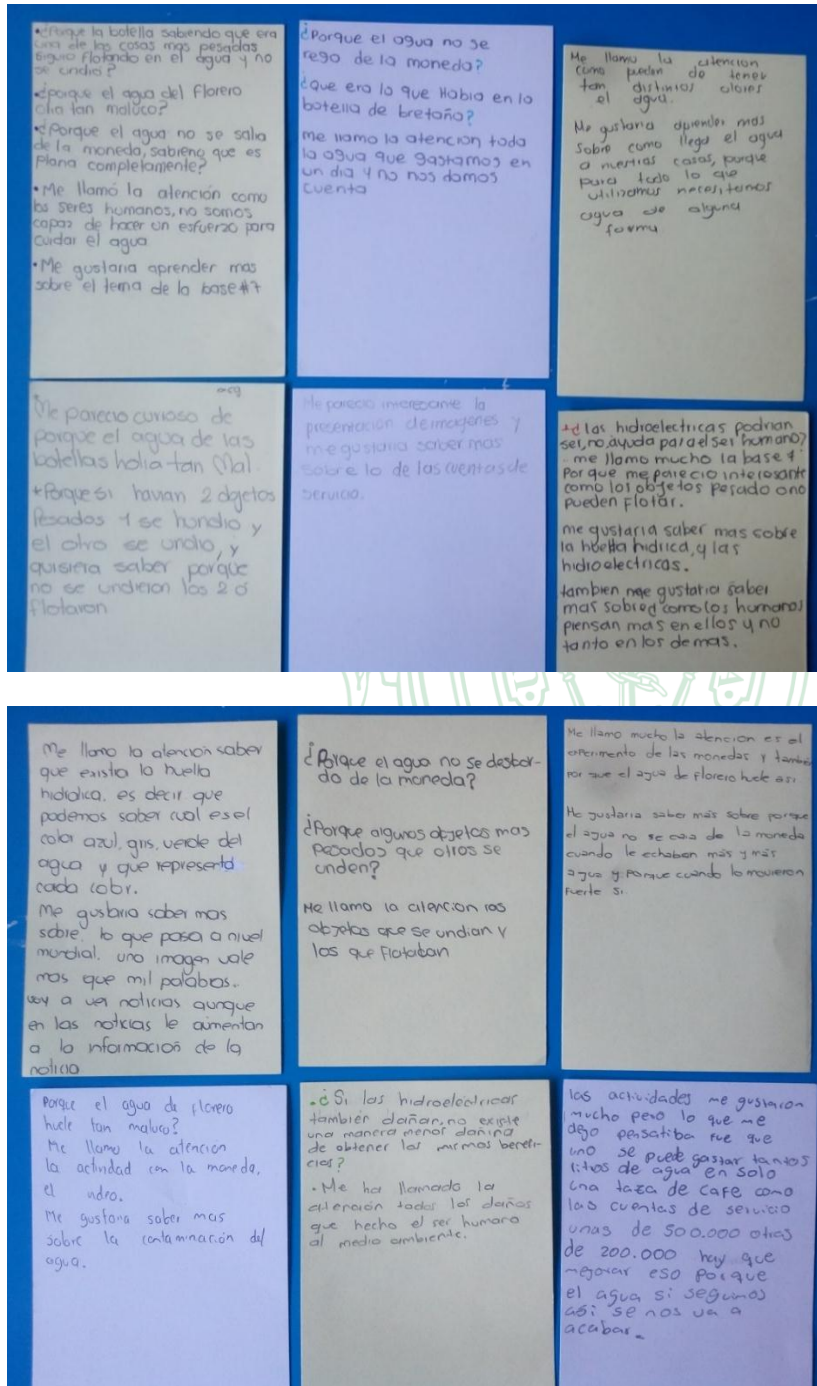 •¿Porque la botella sabiendo que era
una de las cosas mas pesadas
siguio flotando en el agua y no
se undio?
•¿porque el agua del Florero
olia tan maluco?
•¿Porque el agua no se salia
de la moneda, sabieno que es
plana completamente?
•Me llamó la atención como
los seres humanos, no somos
capaz de hacer un esfuerzo para
cuidar el agua
•Me gustaria aprender mas
sobre el tema de la base #7
¿Porque el agua no se
rego de la moneda?
¿que era lo que Habia en la
botella de bretaña?
me llamo la atencion toda
la agua que gastamos en
un dia y no nos damos
cuenta
Me llamo la atencion
como pueden de tener
tan distintos colores
el agua.
Me gustaria aprender mas
sobre como llega el agua
a nuestras casas, porque
para todo lo que
utilizamos necesitamos
agua de alguna
forma
Me parecio curioso de
porque el agua de las
botellas holia tan Mal.
+Porque si havian 2 ogjetos
Pesados 1 se hundio y
el otro se undio, y
quisiera saber porque
no se undieron los 2 o
flotaron
Me parecio interesante la
precentacion de imagenes y
me gustaria saber mas
sobre lo de las cuentas de
servicio.
+¿las hidroelectricas podrian
ser, no, ayuda para el ser humano?
me llamo mucho la base 7
Por que me parecio interesante
como los objetos pesado o no
pueden flotar.
me gustaria saber mas sobre
la huella hidrica, y las
hidroelectricas.
tambien me gustaria saber
mas sobre como los humanos
piensan mas en ellos y no
tanto en los demas.
Me llamo la atencion saber
que existia la huella
hidrolica. es decir que
podemos saber cual es el
color azul, gris, verde del
agua y que representa
cada color.
Me gustaria saber mas
sobre. lo que pasa a nivel
mundial. una imagen vale
mas que mil palabras.
voy a ver noticias aunque
en las noticias le aumentan
a la informacion de la
noticia
¿Porque el agua no se desbor-
do de la moneda?
¿Porque algunos objetos mas
pecados que otros se
unden?
Me llamo la atencion los
objetos que se undian y
los que flotaban
Me llamo mucho la atencion es el
experimento de las monedas y tambien
por que el agua de florero huele asi
Me gustaria saber más sobre porque
el agua no se caia de la moneda
cuando le echaban más y más
agua y porque cuando lo movieron
fuerte si.
Porque el agua de florero
huele tan maluco?
Me llamo la atención
la actividad con la moneda,
el video.
Me gustaria saber mas
sobre la contaminación del
agua.
•¿Si las hidroelectricas
también dañan, no existe
una manera menor dañina
de obtener los mismos benefi-
cios?
•Me ha llamado la
atención todos los daños
que hecho el ser humano
al medio ambiente.
las actividades me gustaron
mucho pero lo que me
dejo pensatiba fue que
uno se puede gastar tantos
litros de agua en solo
una taza de cafe como
las cuentas de servicio
unas de 500.000 otras
de 200.000 hay que
mejorar eso porque
el agua si seguimos
asi se nos va a
acabar.